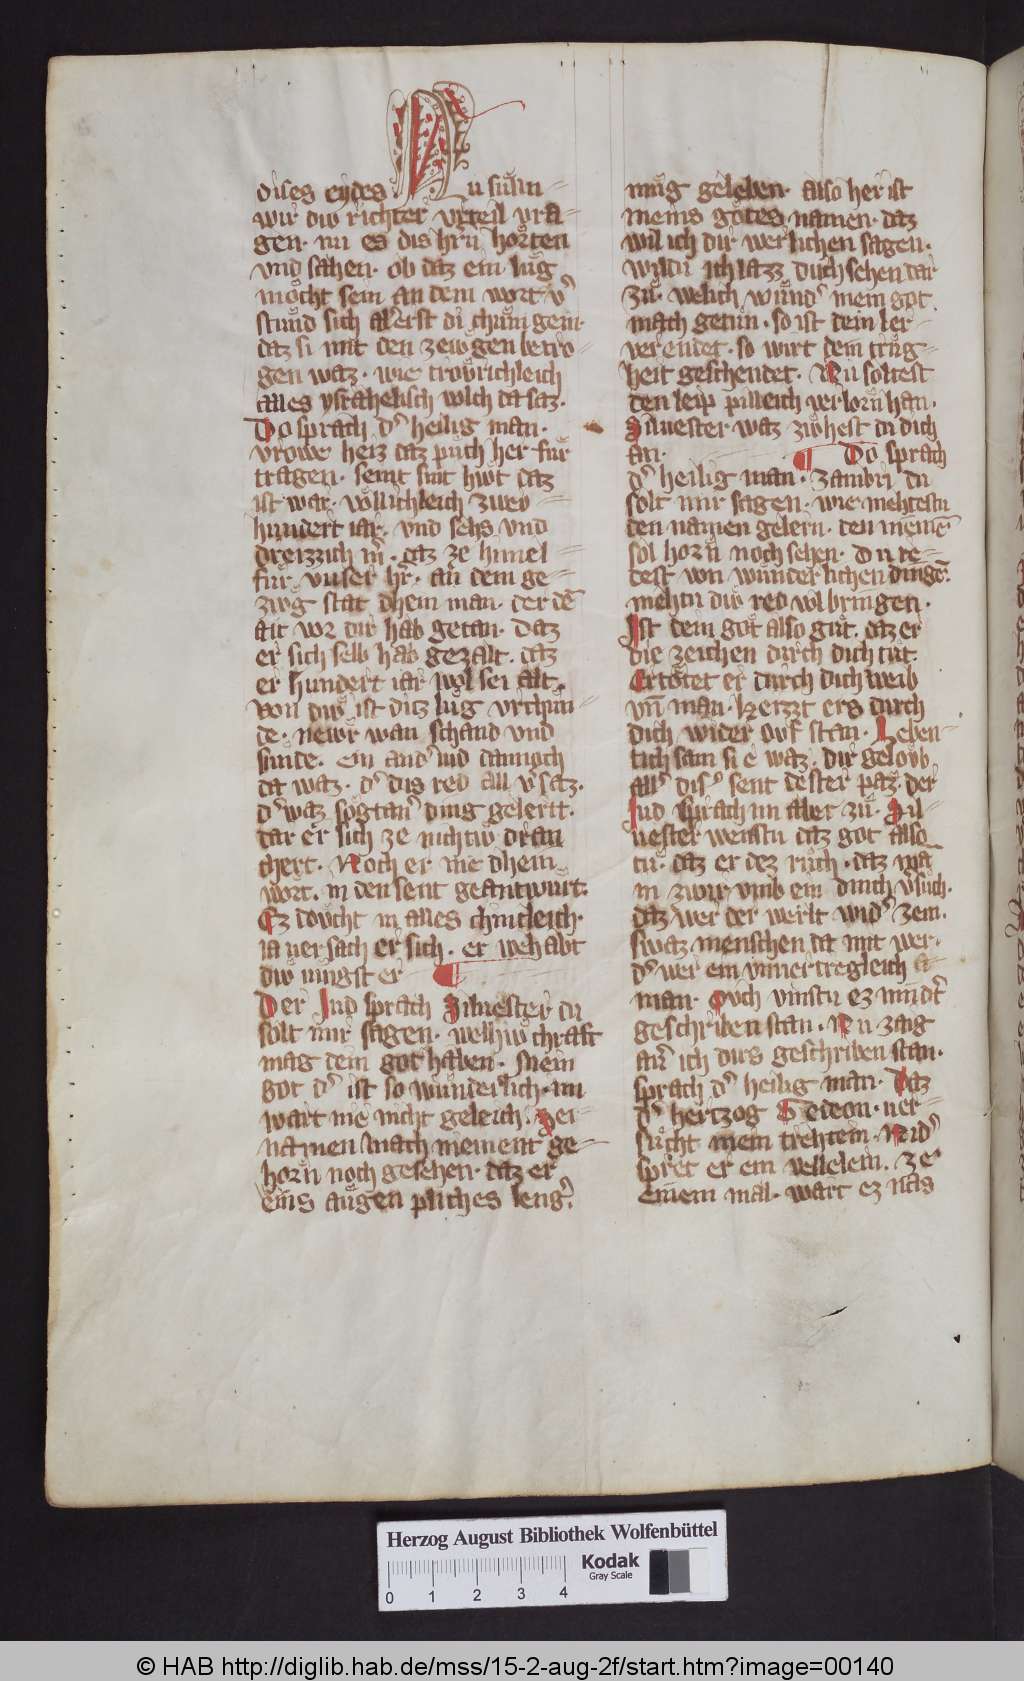 dises eydes Nu suͤlln
wir diͮ richter vrteil vra
gen. nu es dis hr̄n hoͤrten
vnd sahen. ob daz ein luͤg
moͤcht sein an dem wort vˀ
stund sich alˀerst di chuͤnigein.
daz si mit den zewgen betro
gen waz. wie trovrichleich
alles ysrahelisch volch da saz.
Do sprach dˀ heilig man.
vrowe heiz daz puͤch her fuͤr
tragen. seint sint hiwt daz
ist war. voͤllichleich zwev
hundert iar. vnd sehs vnd
dreizzich in. daz ze himel
fuͤr vnser hr̄. an dem ge
zivg stat dhein man. der dē
air wz dir hab getan. Daz
er sich selb hab gezalt. daz
er hundert iar wol sei alt.
von div ist ditz luͤg vrchuͤn
de. newr wan schand vnd
sunde. ein andˀ iud dannoch
da waz. dˀ dis red all vˀsaz.
dˀ waz soͤgtanˀ ding gelert.
dar er sich ze nichtiv dran
chert. Noch er nie dhein
wort. in den sent geantwurt.
Ez dovcht in alles chintleich.
ia versach er sich. er wehabt
div iungst er
Der Jud sprach Siluester du
solt mir sagen. welhiv chraft
mag dein got haben. Mein
got dˀ ist so wunderlich. im
wart nie nicht geleich. Der
namen mach niement ge
horn noch gesehen. daz er
eins augen pliches lengˀ.
muͤg geleben. also her ist
meins gotes namen. daz
wil ich dir werlichen sagen.
wildu ich lazz dich sehen dar
zuͤ. welich wundˀ mein got
mach getuͤn. so ist dein ler
verendet. so wirt dein truͤg
heit geschendet. Nu soltest
den leip pilleich verlorn han.
Siluester waz ziwhest du dich
an. Do sprach
dˀ heilig man. Zambri du
solt mir sagen. wie mehtestu
den namen gelern. den niemē
sol horn noch sehen. du re
dest von wunderlichen dingē.
mehtu div red volbringen.
Ist dein got also guͤt. daz er
die zeichen durch dich tuͤt.
Ertoͤtet er durch dich weib
vn̄ man. herzzt ers durch
dich wider ovf stan. Leben
tich sam si e waz. dir gelovb
allˀ disˀ sent dester paz. der
Jud sprach im aber zuͤ. Sil
uester wenstu daz got also
tuͤ. daz er dez ruͤch. daz mā
in zwir vmb ein dinch vˀsuch.
daz wer der werlt widˀ zem.
swaz menschen da mit wer.
dˀ wer ein vnuertregleich
man. Ovch vinstu ez nindˀt
geschriben stan. Nu zaig
an ich dirs geschriben stan.
sprach dˀ heilig man. Daz
dˀ hertzog Gedeon. ver
suͤcht mein trehtein. Nidˀ
spret er ein vellelein. ze
einem mal. wart ez nas
Herzog August Bibliothek Wolfenbüttel
0 1 2 3 4
Kodak
Gray Scale
© HAB http://diglib.hab.de/mss/15-2-aug-2f/start.htm?image=00140